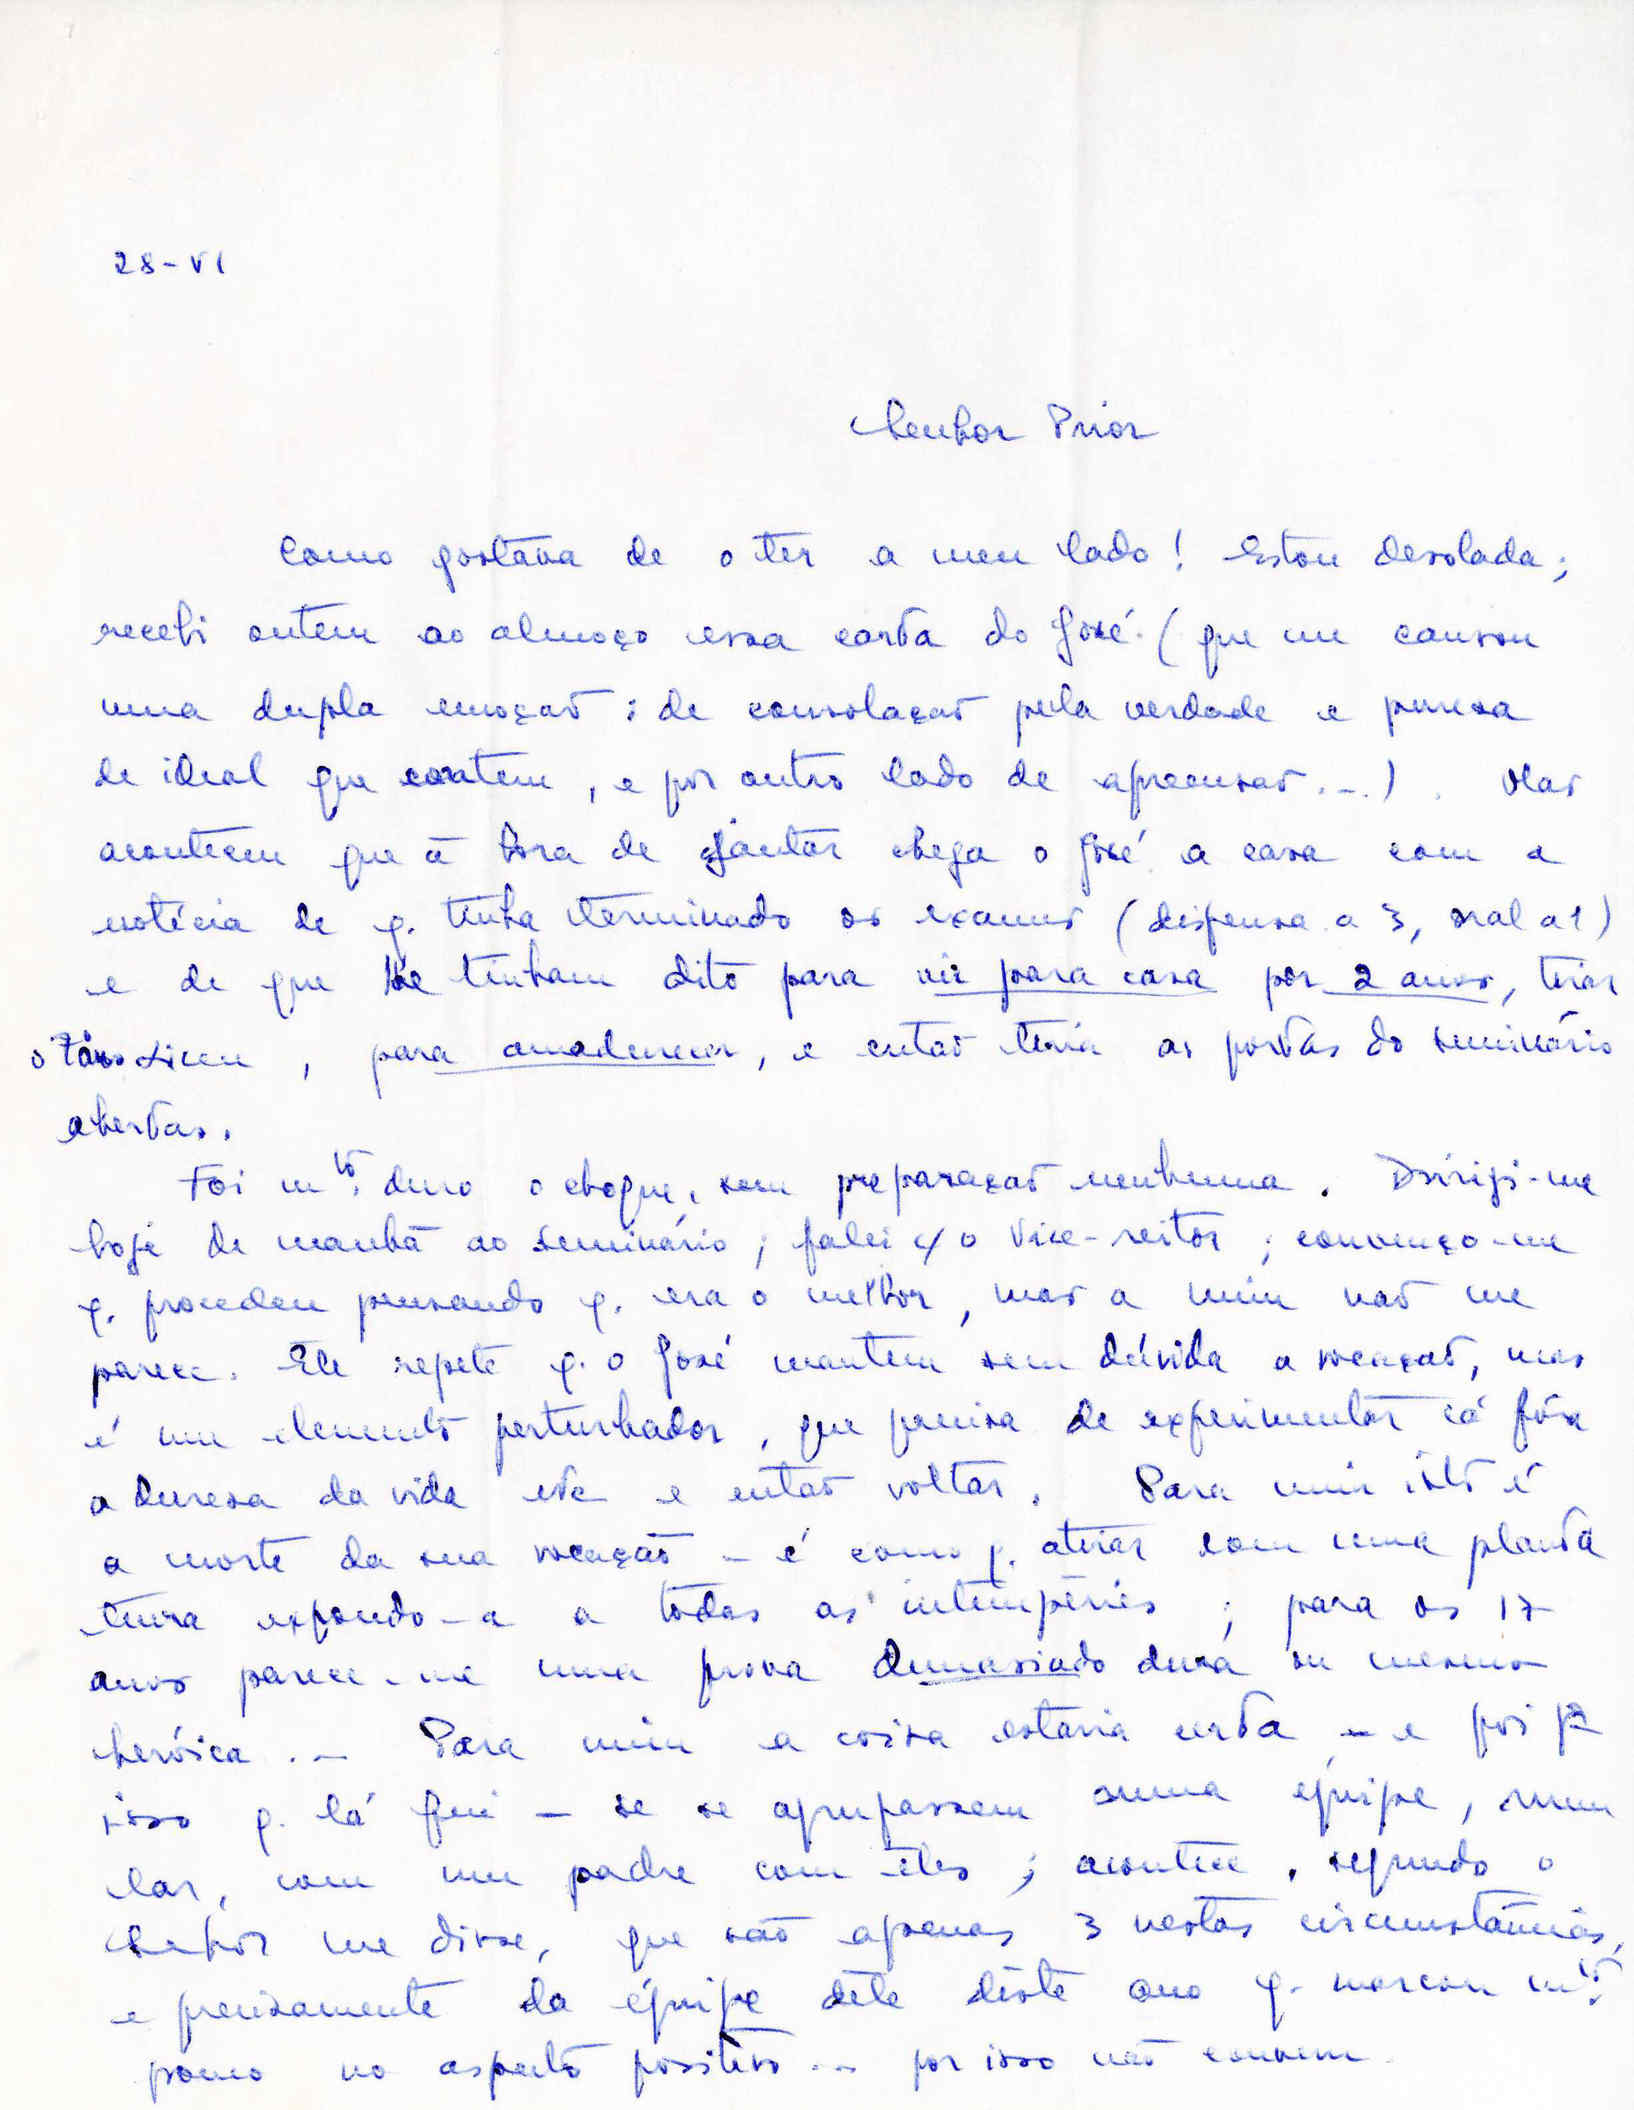 28-VI
Senhor Prior
Como gostava de o ter a meu lado! Estou desolada;
recebi ontem ao almoço essa carta do José (que me causou
uma dupla emoção: de consolação pela verdade e pureza
de ideal que contem, e por outro lado de apreensão...). Mas
aconteceu que à hora de jantar chega o José a casa com a
notícia de q. tinha terminado os exames (dispensa a 3, oral a 1)
e de que lhe tinham dito para vir para casa por 2 anos, tirar
o 7º ano Liceu, para amadurecer, e então teria as portas do seminário
abertas.
Foi mtº duro o choque, sem preparação nenhuma. Dirigi-me
hoje de manhã ao Seminário; falei c/ o Vice-reitor; convenço-me
q. procedeu pensando q. era o melhor, mas a mim não me
parece. Ele repete q. o José mantem sem dúvida a vocação, mas
é um elemento perturbador, que precisa de experimentar cá fóra
a dureza da vida etc e então voltar. Para mim isto é
a morte da sua vocação - é como q. atirar com uma planta
tenra expondo-a a todas as intempéries; para os 17
anos parece-me uma prova demasiado dura ou mesmo
heróica... Para mim a coisa estaria certa - e foi pª
isso q. lá fui - se se agrupassem numa équipe, num
lar, com um padre com êles; acontece, segundo o
Senhor me disse, que são apenas 3 nestas circunstâncias,
e precisamente da équipe dêle dêste ano q. marcou mtº
pouco no aspecto positivo... por isso não convem